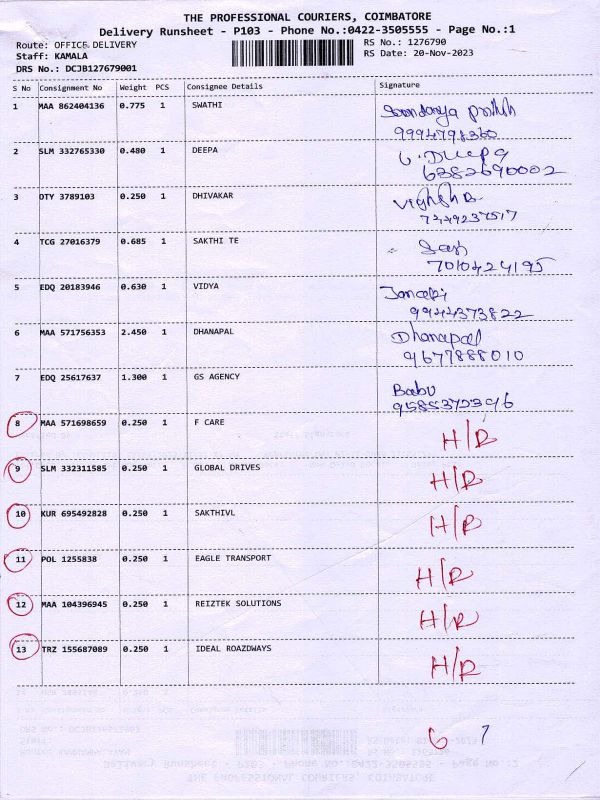 THE PROFESSIONAL COURIERS, COIMBATORE
Delivery Runsheet - P103 - Phone No.:0422-3505555 - Page No.:1
Route: OFFICE DELIVERY RS No.: 1276790
Staff: KAMALA RS Date: 20-Nov-2023
DRS No.: DCJB127679001
S No Consignment No Weight PCS Consignee Details Signature
1 MAA 862404136 0.775 1 SWATHI
9994798360
2 SLM 332765330 0.480 1 DEEPA G. Deepa
6382690002
3 DTY 3789103 0.250 1 DHIVAKAR
7449237517
4 TCG 27016379 0.685 1 SAKTHI TE
7010424195
5 EDQ 20183946 0.630 1 VIDYA Janaki
9944373822
6 MAA 571756353 2.450 1 DHANAPAL Dhanapal
9677888010
7 EDQ 25617637 1.300 1 GS AGENCY Babu
9585372396
8 MAA 571698659 0.250 1 F CARE H/R
9 SLM 332311585 0.250 1 GLOBAL DRIVES H/R
10 KUR 695492828 0.250 1 SAKTHIVL H/R
11 POL 1255838 0.250 1 EAGLE TRANSPORT H/R
12 MAA 104396945 0.250 1 REIZTEK SOLUTIONS H/R
13 TRZ 155687089 0.250 1 IDEAL ROAZDWAYS H/R
6 7